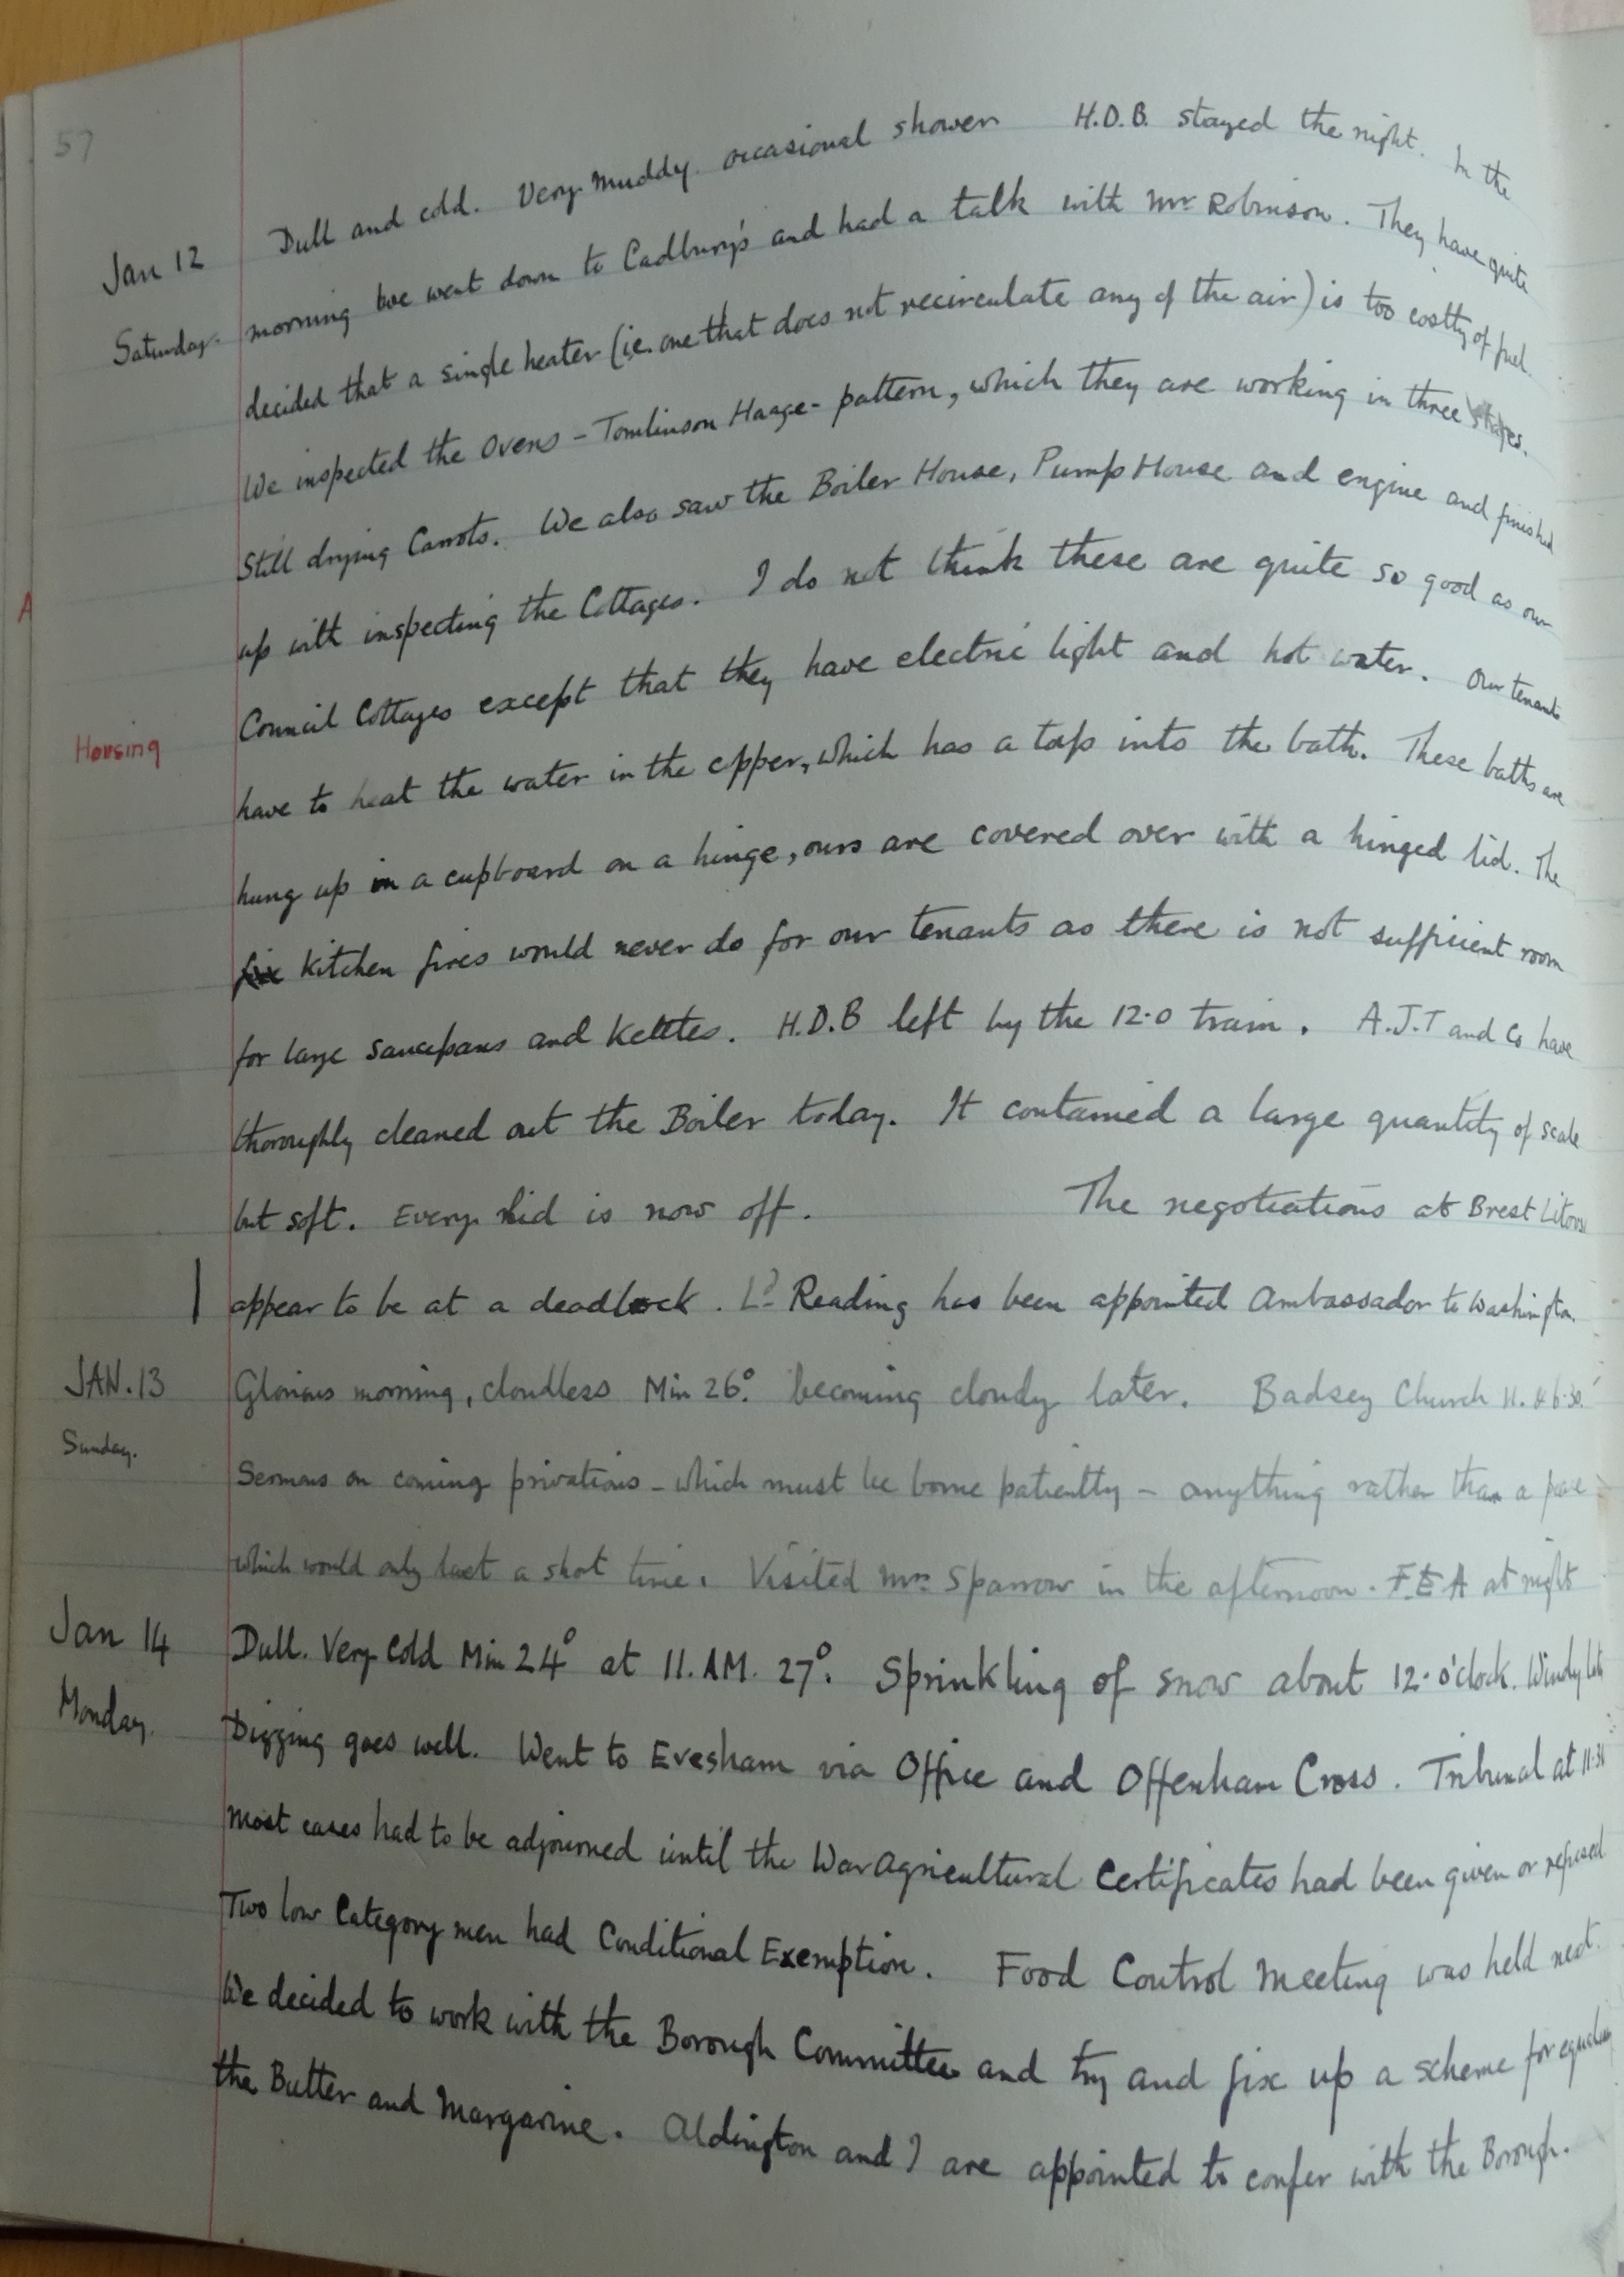 57
Jan 12 Dull and cold. Very muddy occasional shower H.D.B. stayed the night. In the
Saturday. morning we went down to Cadbury's and had a talk with Mr Robinson. They have quite
decided that a single heater (i.e. one that does not recirculate any of the air) is too costly of fuel.
We inspected the Ovens - Tomlinson Haage - pattern, which they are working in three stages.
Still drying Carrots. We also saw the Boiler House, Pump House and engine and finished
A up with inspecting the Cottages. I do not think these are quite so good as our
Council Cottages except that they have electric light and hot water. Our tenants
Housing have to heat the water in the copper, which has a tap into the bath. These baths are
hung up in a cupboard on a hinge, ours are covered over with a hinged lid. The
kitchen fires would never do for our tenants as there is not sufficient room
for large saucepans and kettles. H.D.B left by the 12.0 train. A.J.T and Co have
thoroughly cleaned out the Boiler today. It contained a large quantity of scale
but soft. Every lid is now off. The negotiations at Brest Litovsk
appear to be at a deadlock. Ld Reading has been appointed Ambassador to Washington.
JAN. 13 Glorious morning, cloudless Min 26°. becoming cloudy later. Badsey Church 11. & 6.30.
Sunday. Sermons on coming privations - which must be borne patiently - anything rather than a peace
which would only last a short time. Visited Mrs Sparrow in the afternoon. F.E A at night
Jan 14 Dull. Very Cold Min 24° at 11. AM. 27°. Sprinkling of snow about 12. o'clock. Windy late
Monday. Digging goes well. Went to Evesham via Office and Offenham Cross. Tribunal at 11.30
most cases had to be adjourned until the War Agricultural Certificates had been given or refused.
Two low Category men had Conditional Exemption. Food Control Meeting was held next.
We decided to work with the Borough Committee and try and fix up a scheme for
the Butter and Margarine. Aldington and I are appointed to confer with the Borough.